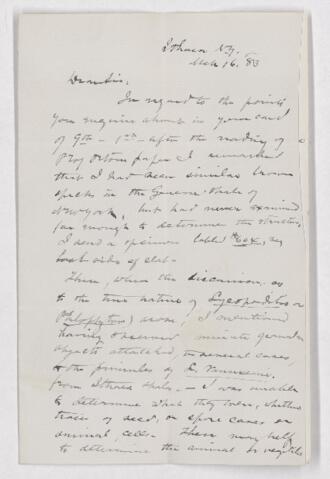 Ithaca N.Y.
Mch 16. '83
Dear Sir:
In regard to the points
you enquire about in your card
of 9th - 1st - after the reading of
Prof Orton's paper I remarked
that I had seen similar brown
specks in the Genesee Shale of
New York, but had never examined
far enough to determine the structure,
I send a specimen labled
both sides of slab.
Then, when the discussion as
to the true nature of Lycopodites or
Ptilophyton arose, I mentioned
having observed minute granular
objects attached, in several cases,
to the pinnules of L. Vanuxemi,
from Ithaca shale. - I was unable
to determine what they were, whether
trace of seed, or spore cases or
animal cells - These may help
to determine the animal or vegetable